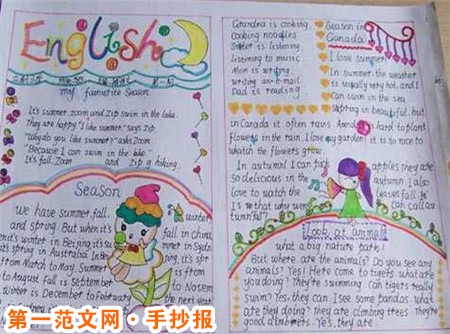 English
my favourite Season
It's summer zoom and Zip swim in the lake.
They are happy "I like summer," says Zip
"Why do you like summer?" asks Zoom
"Because I can swim in the lake."
It's fall. Zoom and Zip g hiking.
Season
we have summer, fall, winter
and spring. But when it's fall in China,
it's winter in Beijing it's summer in
it's spring in Australia. In
from March to May. Summer
to August Fall is September to Novem
winter is December to February
the next year
Grandma is cooking.
Cooking noodles
Sister is listening.
Listening to music
Mom is writing
writing an e-mail
Dad is reading
Season in
Canada
I love summer
In summer, the weather
is usually very hot, and I
can swim in the sea
Spring in beautiful, but
in Canada it often rains hard to plant
flowers in the rain. I love my garden it is so nice to
watch the flowers grow.
In autumn! I can pick apples they are
so delicious in the autumn. I also
love to watch the leaves fall
It's that why we can call au
tumn fall
Look at animals
what a big nature park!
But where are the animals? Do you see any
animals? Yes! Here come to tigers what are
you doing? They're swimming Can tigers really
swim? Yes, they can. I See some pandas. what
are they doing? They are climbing trees They're
good climbers Yes, they are.
第一范文网·手抄报